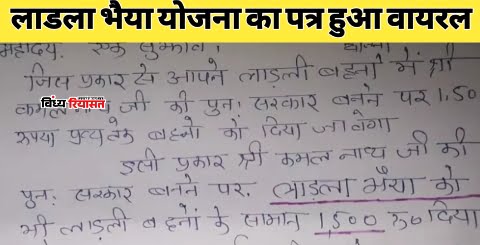 लाडला भैया योजना का पत्र हुआ वायरल
महोदय. एक सुझाव।
जिस प्रकार से आपने लाड़ली बहनों में श्री
विंध्य रियासत
कमल नाथ जी की पुनः सरकार बनने पर 1.50
रूपया प्रत्येक बहनों को दिया जावेगा
इसी प्रकार श्री कमल नाथ जी की
पुनः सरकार बनने पर. लाड़ला भैया को
भी लाड़ली बहनों के सामान 1500 रू0 दिया